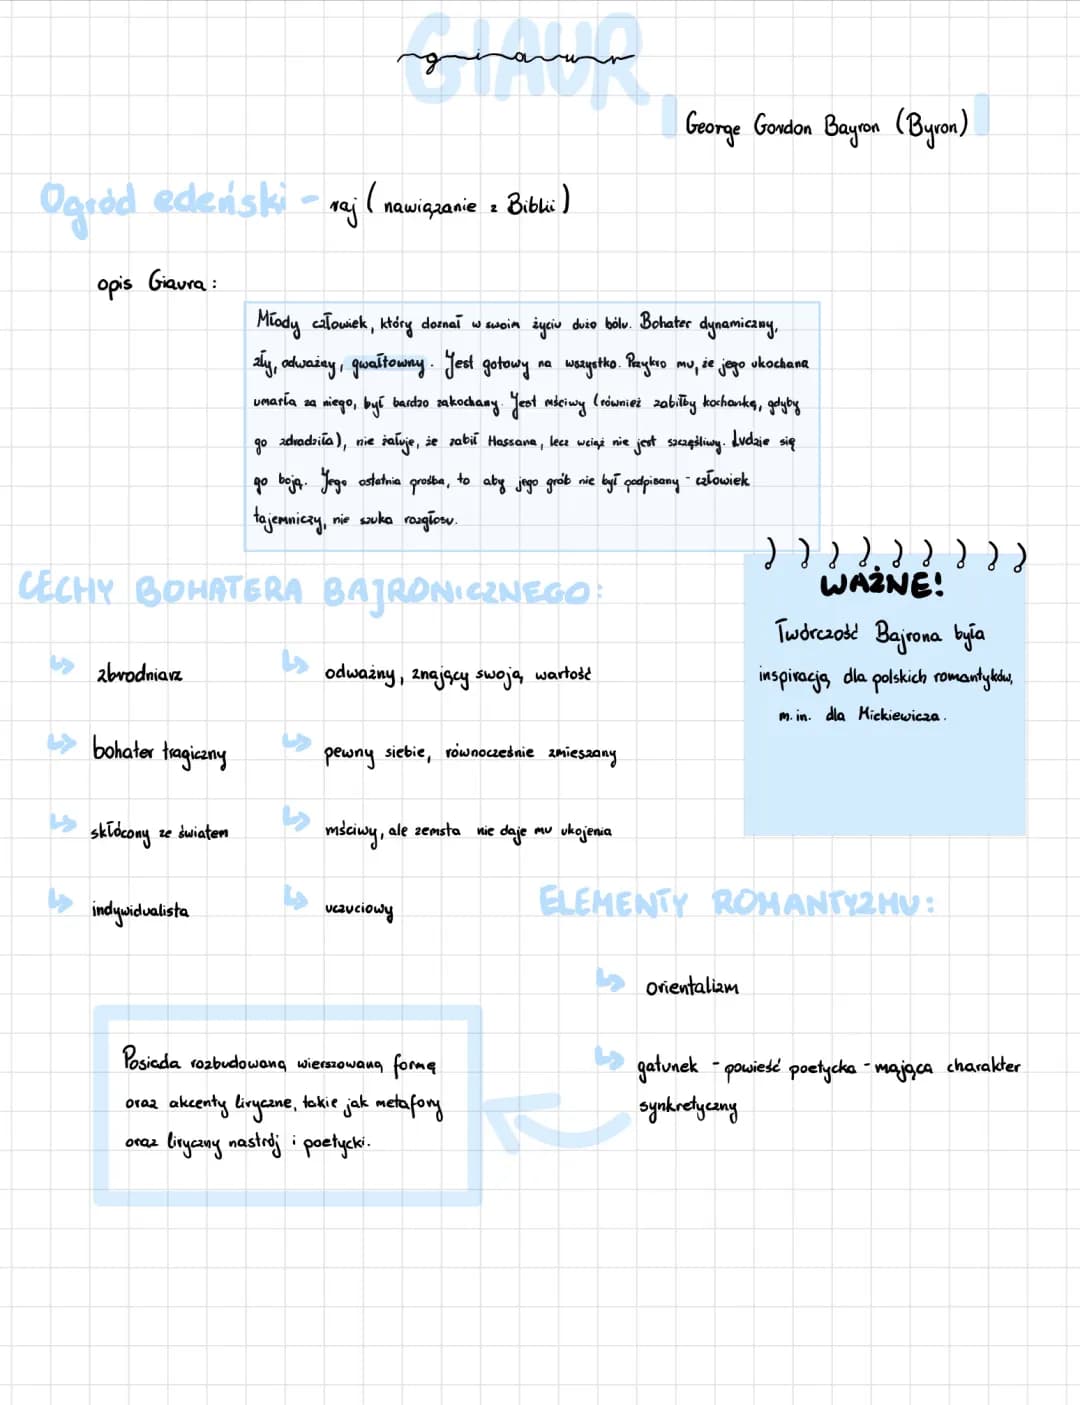 GIAUR
giaur
George Gordon Bayron (Byron)
Ogród edeński - raj (nawiązanie z Biblii)
opis Giaura:
Młody człowiek, który doznał w swoim życiu dużo bólu. Bohater dynamiczny,
zły, odważny, gwałtowny. Jest gotowy na wszystko. Przykro mu, że jego ukochana
umarła za niego, był bardzo zakochany. Jest mściwy (również zabiłby kochankę, gdyby
go zdradziła), nie żałuje, że zabił Hassana, lecz wciąż nie jest szczęśliwy. Ludzie się
go boją. Jego ostatnia prośba, to aby jego grób nie był podpisany - człowiek
tajemniczy, nie szuka rozgłosu.
CECHY BOHATERA BAJRONICZNEGO:
↳ zbrodniarz
↳ bohater tragiczny
↳ skłócony ze światem
↳ indywidualista
↳ odważny, znający swoją wartość
↳ pewny siebie, równocześnie zmieszany
↳ mściwy, ale zemsta nie daje mu ukojenia
↳ uczuciowy
WAŻNE!
Twórczość Bajrona była
inspiracją dla polskich romantyków,
m.in. dla Mickiewicza.
ELEMENTY ROMANTYZMU:
↳ orientalizm
↳ gatunek - powieść poetycka - mająca charakter
synkretyczny
Posiada rozbudowaną wierszowaną formę
oraz akcenty liryczne, takie jak metafory
oraz liryczny nastrój i poetycki.